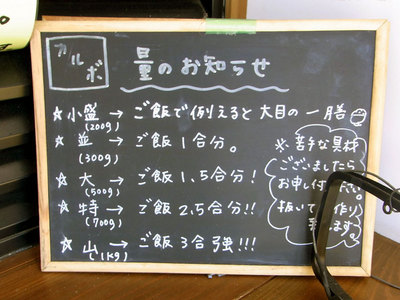 カルボ
量のお知らせ
☆小盛→ご飯で例えると大目の一膳
(200g)
☆並→ご飯1合分。
(300g)
☆大→ご飯1.5合分!
(500g)
☆特→ご飯2.5合分!!
(700g)
☆山→ご飯3合強!!!
(1kg)
※苦手な具材
ございましたら
お申し付
ださい。
抜いて
作り
ます。